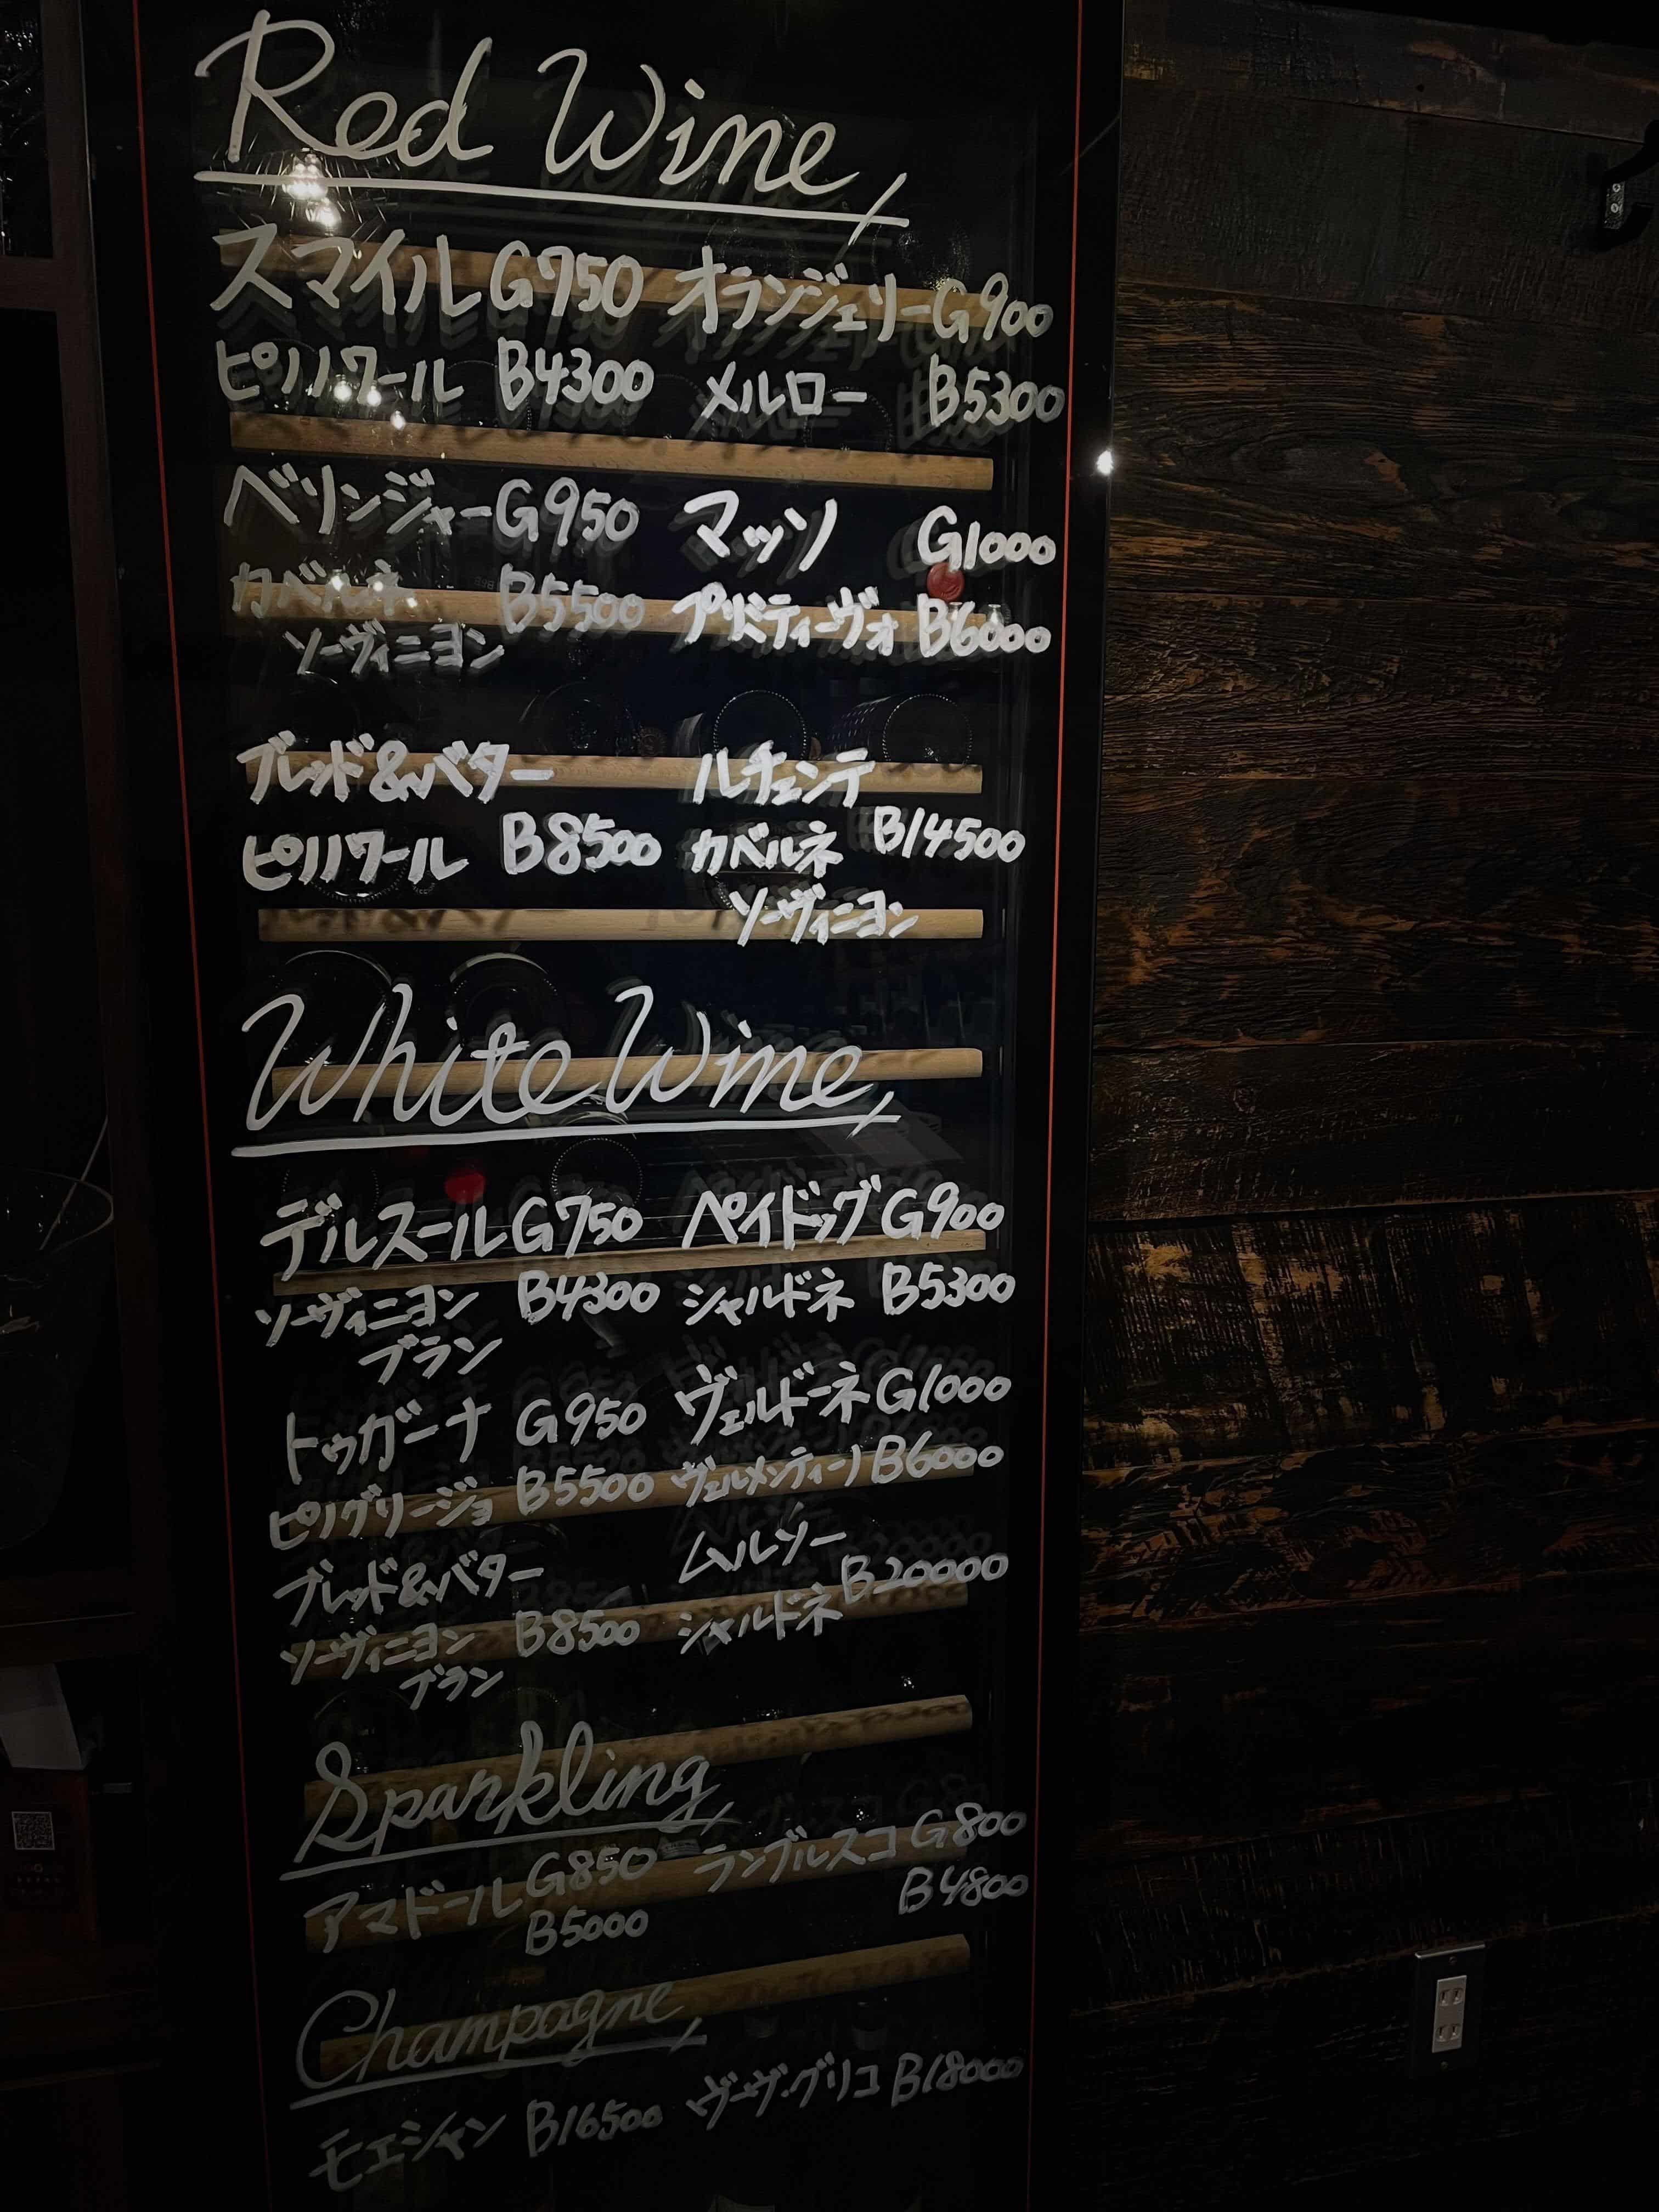 Red Wine
スマイル G750 オランジェリー G900
ピノノワール B4300 メルロー B5300
ベリンジャー G950 マッソ G1000
カベルネ B5500 プリミティーヴォ B6000
ソーヴィニヨン
ブレッド&バター ルチェンテ
ピノノワール B8500 カベルネ B14500
ソーヴィニヨン
White Wine
デルスール G750 ペイドッグ G900
ソーヴィニヨン B4300 シャルドネ B5300
ブラン
トゥガーナ G950 ヴェルドーネ G1000
ピノグリージョ B5500 ヴェルメンティーノ B6000
ブレッド&バター ムルソー
ソーヴィニヨン B8500 シャルドネ B20000
ブラン
Sparkling
アマドール G850 ランブルスコ G800
B5000 B4800
Champagne
モエシャン B16500 ヴーヴ・グリコ B18000